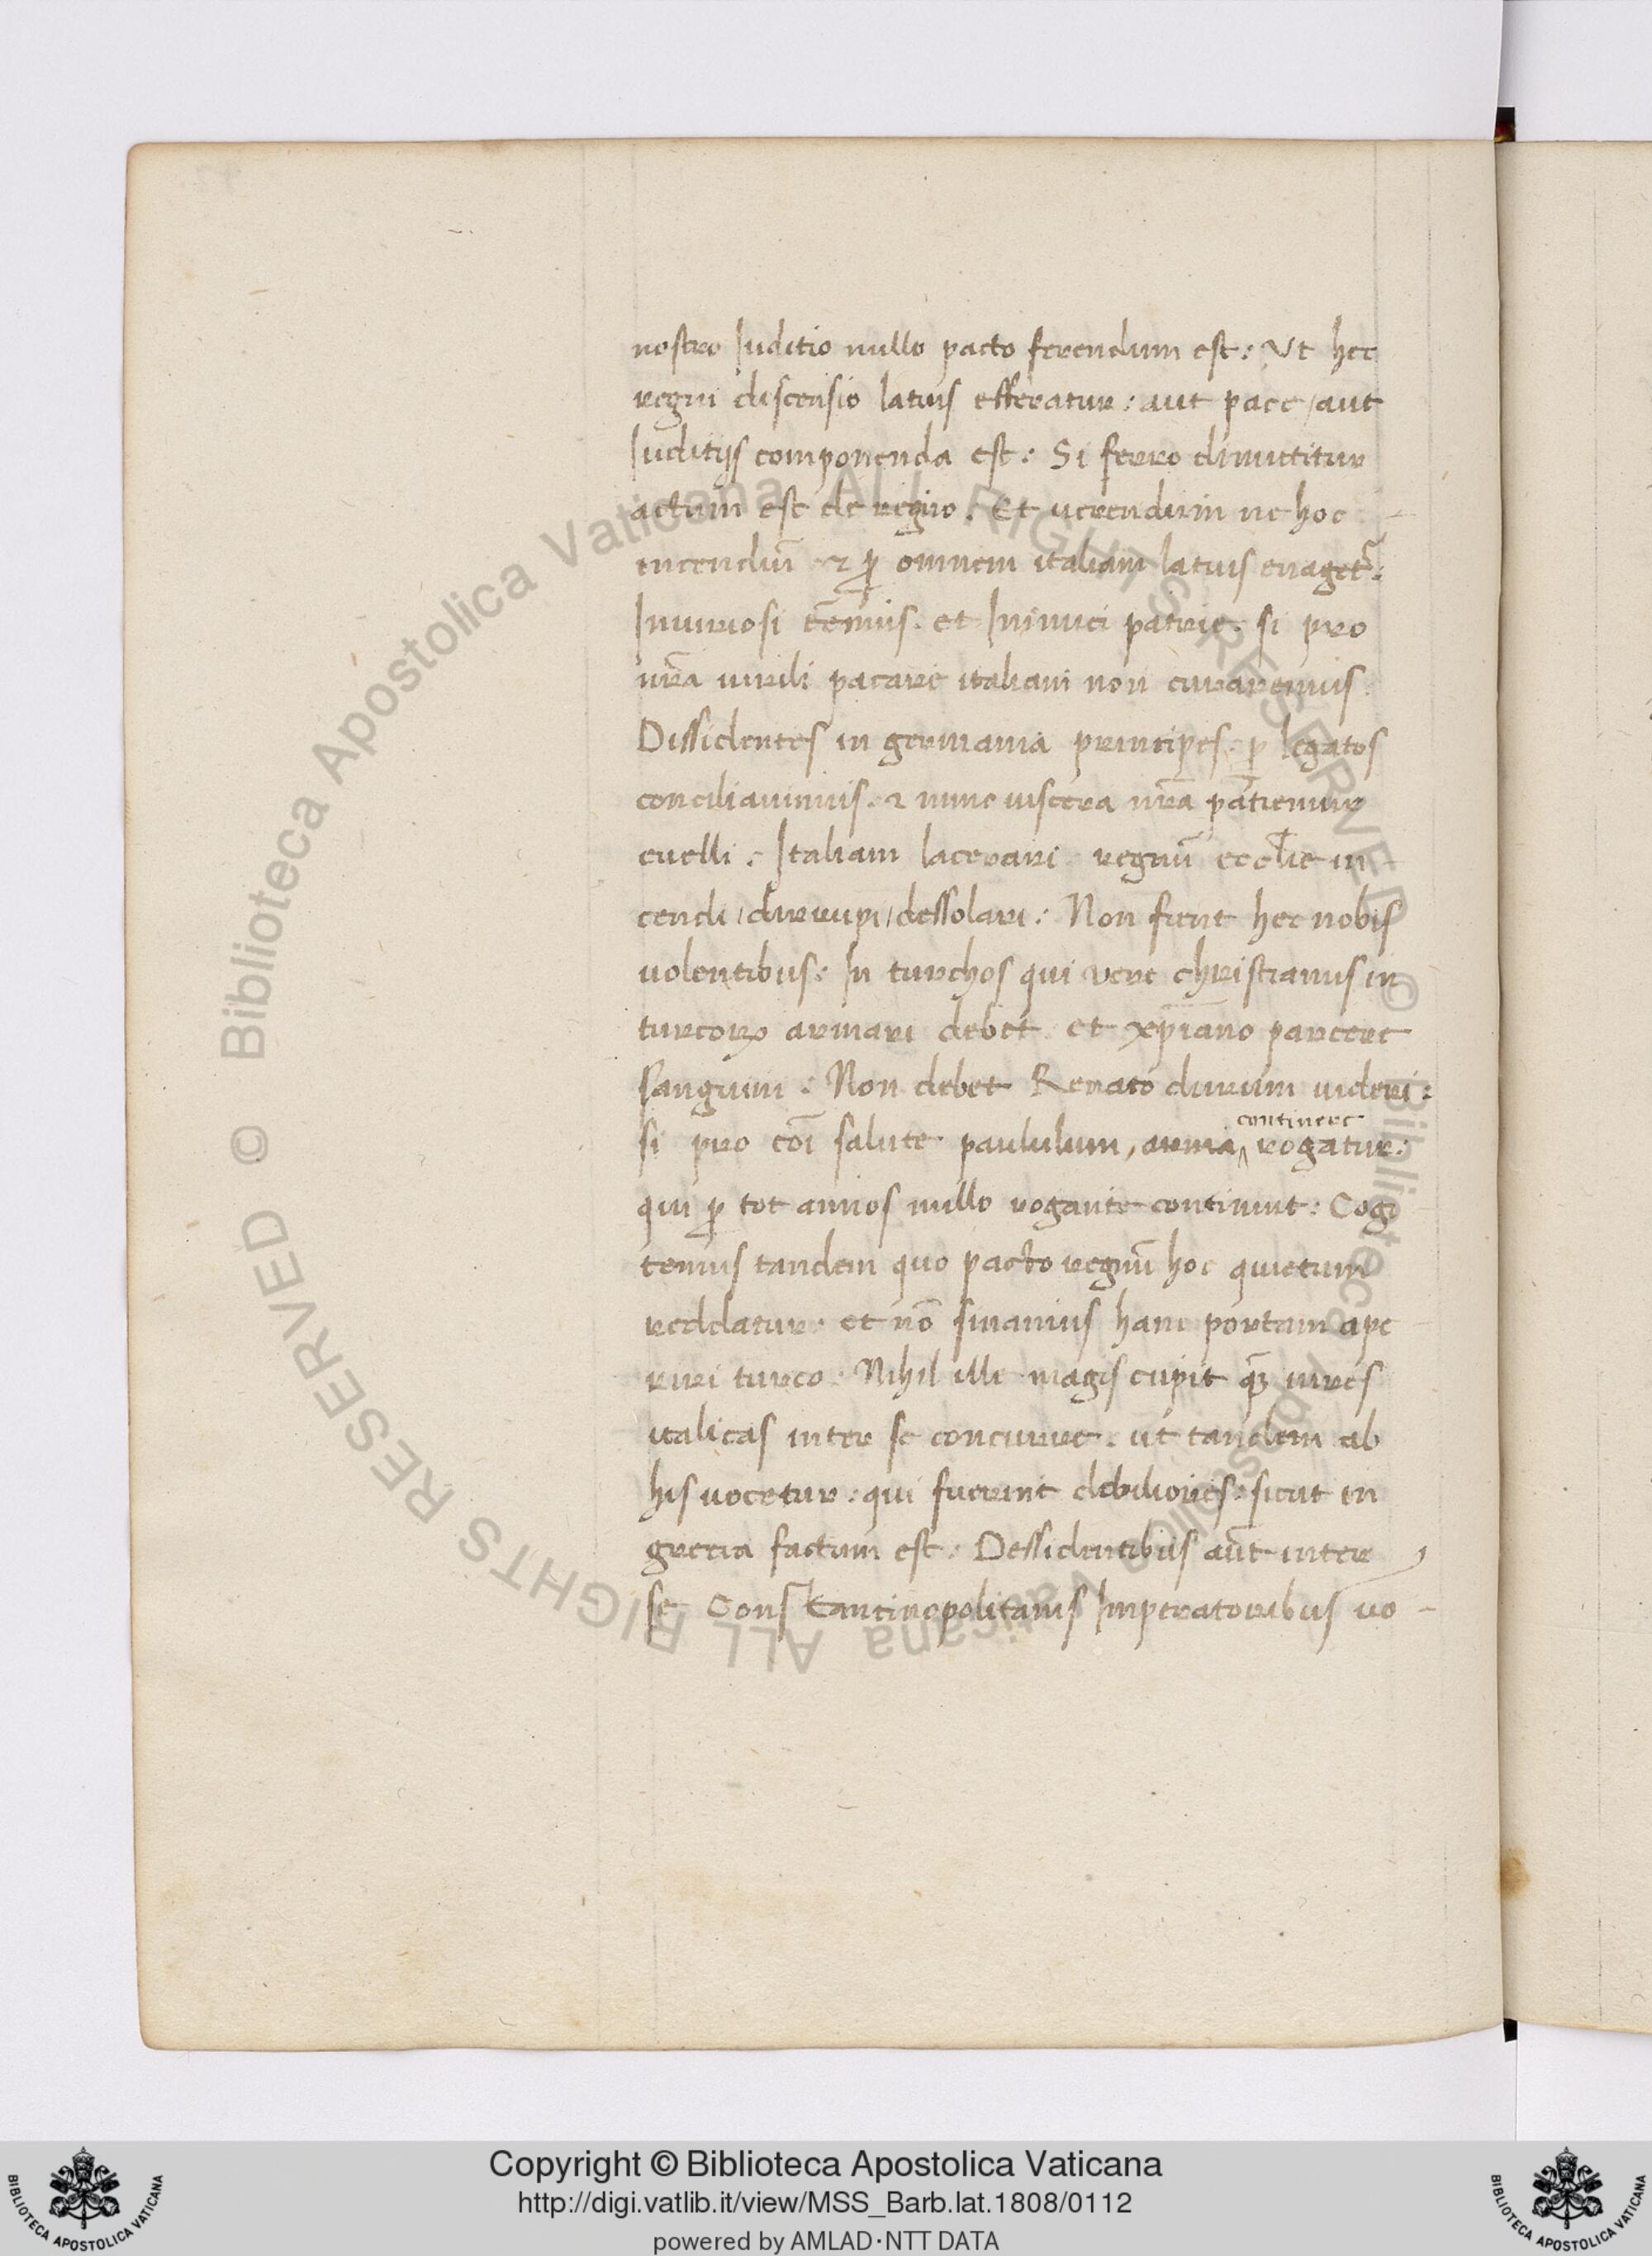 nostro Iuditio nullo pacto ferendum est: Ut hec
regni discensio latius efferatur: aut pace / aut
Iuditijs componenda est: Si ferro dimictitur
actum est de regno. Et verendum ne hoc
incendiū & ꝑ omnem italiam latius euaget᷑:
Iniuriosi eēmus. et Inimici patrie. si pro
nr̄a uirili pacare italiam non curaremus.
Dissidentes in germania principes. ꝑ legatos
conciliauimus. & nunc uiscera nr̄a patiemur
euelli: Italiam lacerari regnū eccl̄ie in
cendi / dirrupi / dessolari: Non fient hec nobis
uolentibus: In turchos qui vere christianus in
turcoꝝ armari debet et xp̄iano parcere
sanguini: Non debet Renato durum uideri:
si pro cōi salute paululum, arma continere rogatur:
qui ꝑ tot annos nullo rogante continuit: Cogi
temus tandem quo pacto regnū hoc quietum
reddatur. et nō sinamus hanc portam ape
riri turco: Nihil ille magis cupit qȝ uires
italicas inter se concurrere. ut tandem ab
his uocetur: qui fuerint debiliores: sicut in
grecia factum est: Dessidentibus aūt inter
se Constantinopolitanis Imperatoribus uo
Copyright © Biblioteca Apostolica Vaticana
http://digi.vatlib.it/view/MSS_Barb.lat.1808/0112
powered by AMLAD·NTT DATA
BIBLIOTECA APOSTOLICA VATICANA
BIBLIOTECA APOSTOLICA VATICANA
© Biblioteca Apostolica Vaticana ALL RIGHTS RESERVED
© Biblioteca Apostolica Vaticana ALL RIGHTS RESERVED